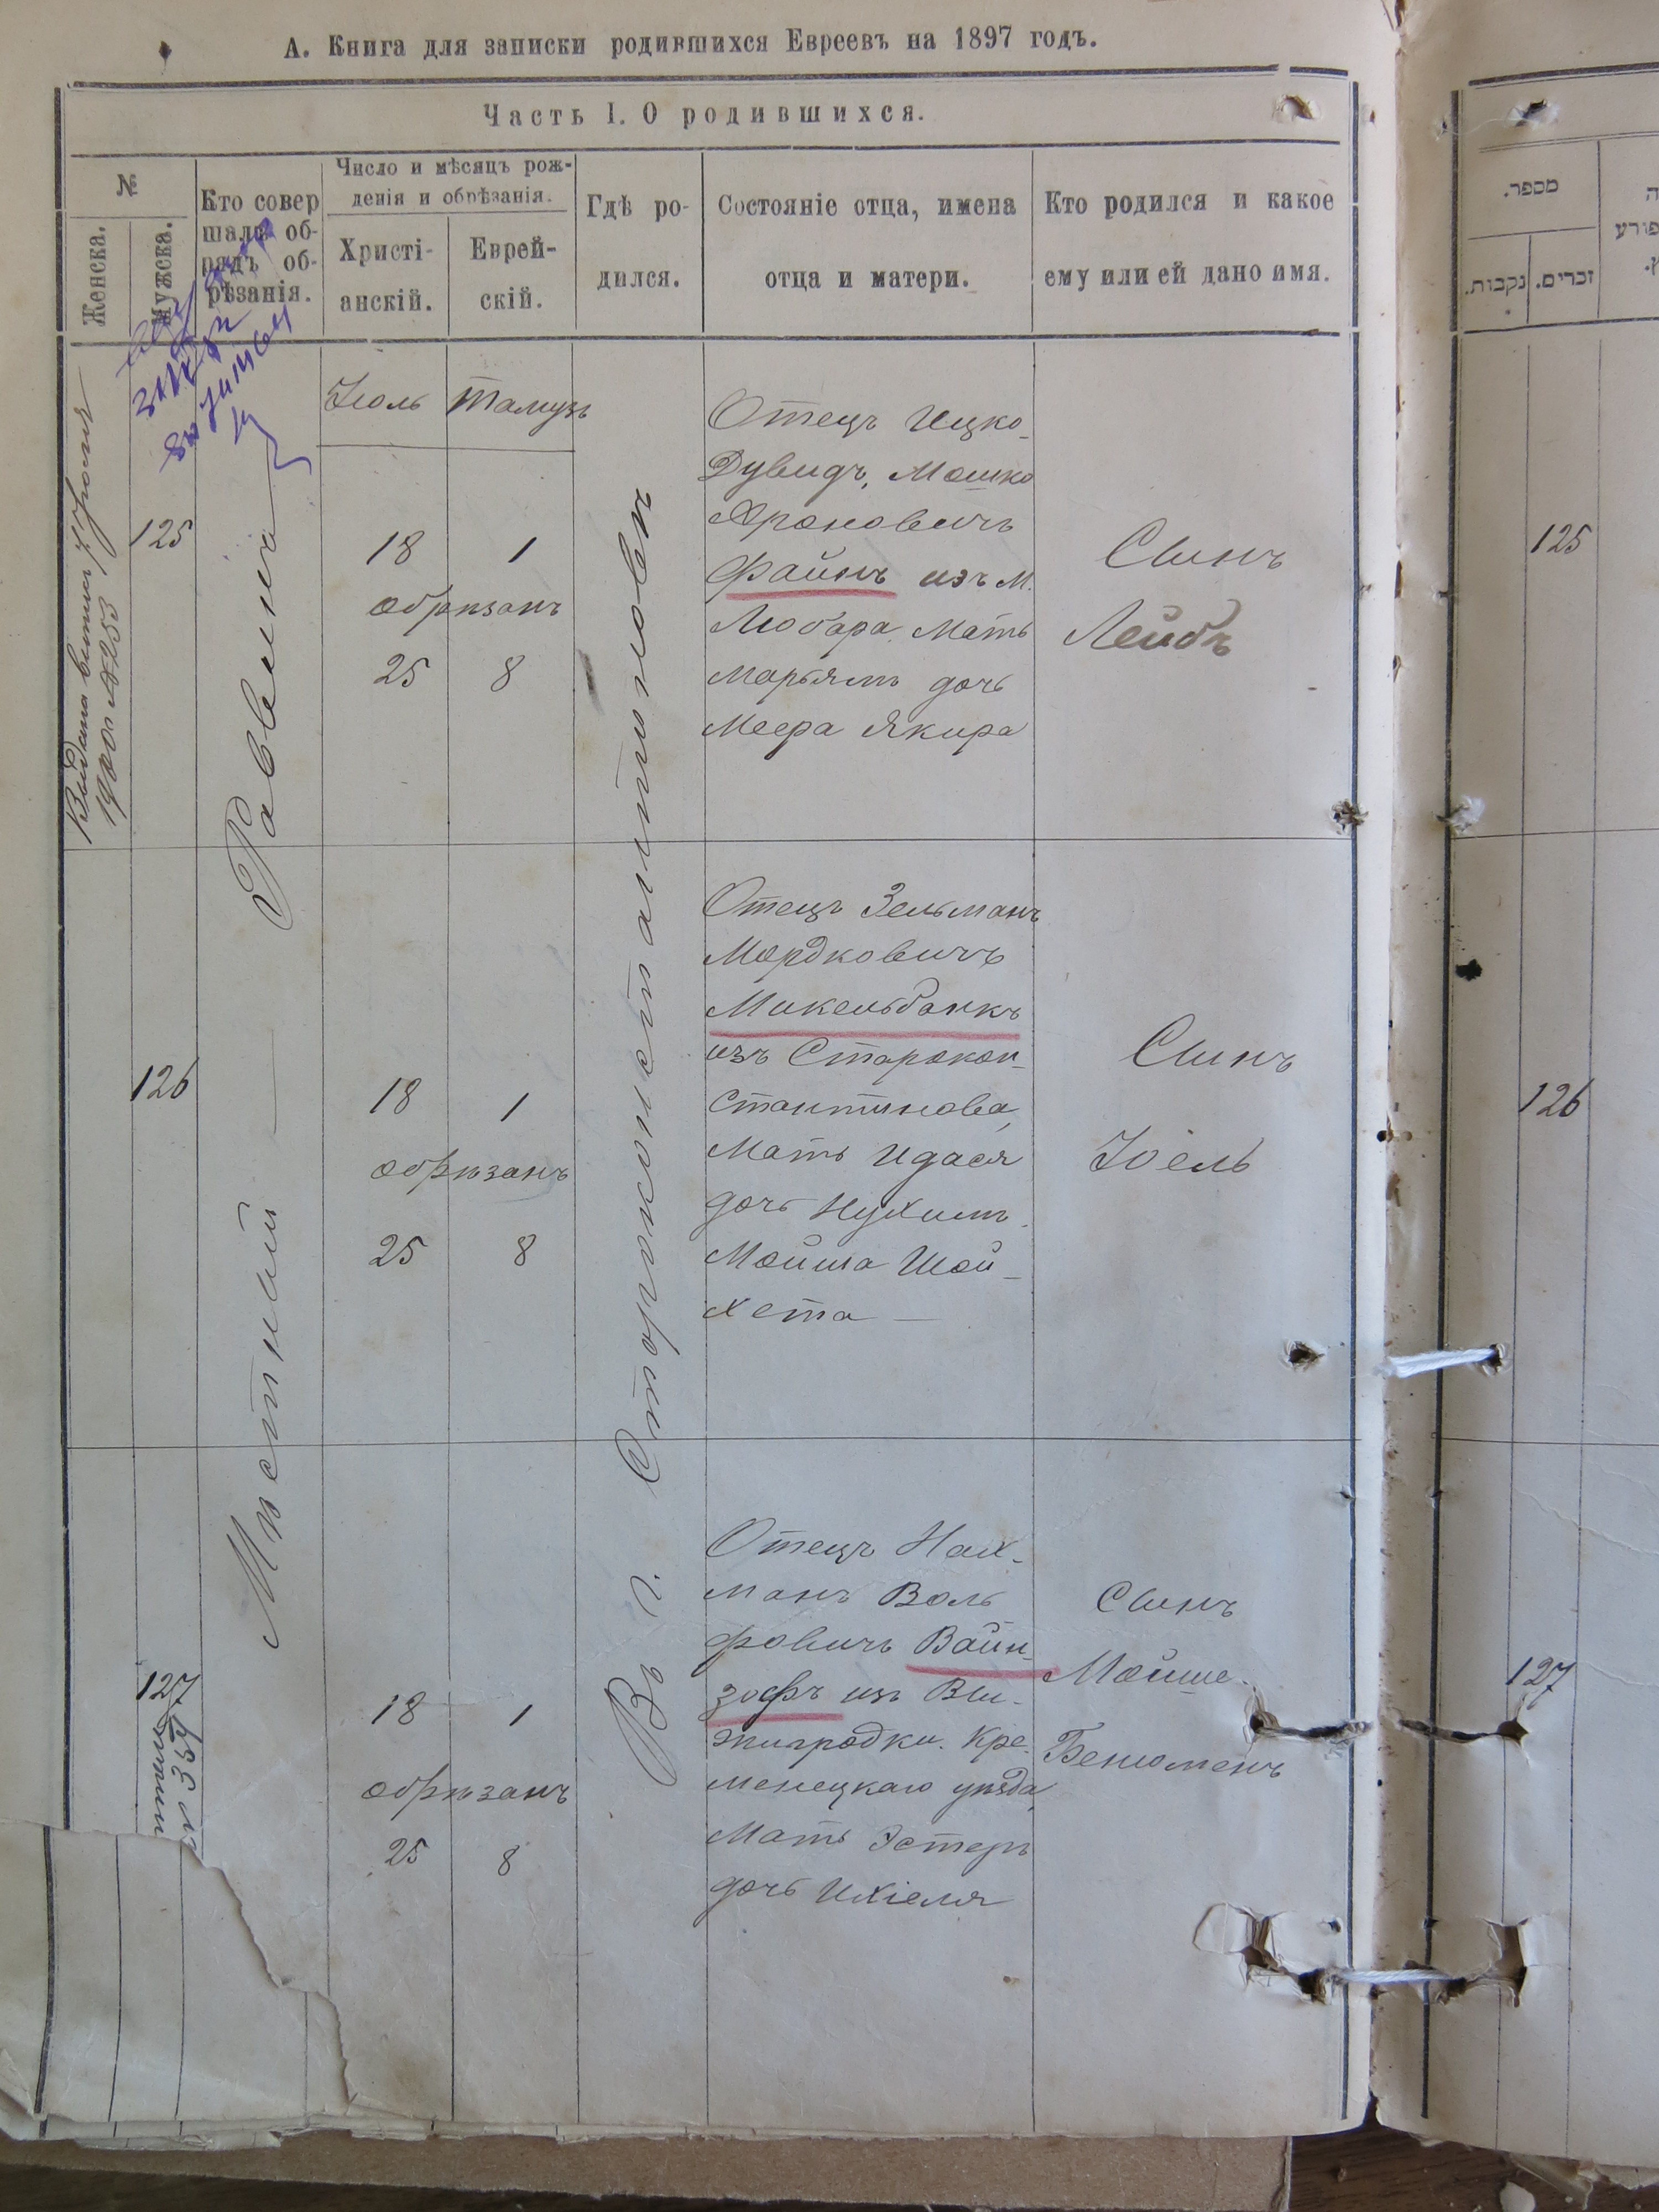 А. Книга для записки родившихся Евреевъ на 1897 годъ.
Часть I. О родившихся.
№
Женска.
Мужска.
Кто совер
шалъ об-
рядъ об-
рѣзанія.
Число и мѣсяцъ рож-
денія и обрѣзанія.
Христі-
анскій.
Еврей-
скій.
Гдѣ ро-
дился.
Состояніе отца, имена
отца и матери.
Кто родился и какое
ему или ей дано имя.
Мѣстный — Раввинъ
Въ г. Староконстантиновѣ
Іюль
Тамузъ
125
18 1
обрѣзанъ
25 8
Отецъ Ицко-
Дувидъ, Мошко
Ароновичъ
Файнъ изъ м.
Любара, Мать
Марьямъ дочь
Меера Якира
Сынъ
Лейбъ
126
18 1
обрѣзанъ
25 8
Отецъ Зельманъ
Мордковичъ
Микельбанкъ
изъ Старокон-
стантинова,
Мать Идася
дочь Нухимъ
Мойша Шой-
хета —
Сынъ
Іоель
127
18 1
обрѣзанъ
25 8
Отецъ Нах-
манъ Воль
фовичъ Вайн-
зофъ изъ Вы-
жгородки. Кре-
менецкаго уѣзда,
Мать Эстеръ
дочь Ихіеля
Сынъ
Мойше-
Беньюменъ
מספר.
זכרים.
נקבות.
125
126
127